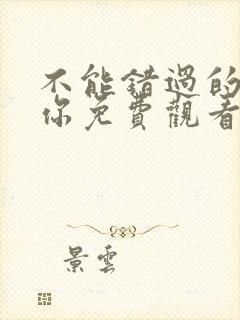 不能錯過的
你免費觀看
景雲